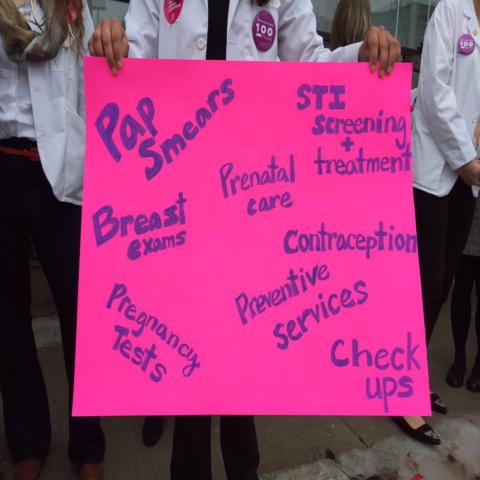 Pap
Smears
STI
screening
+
treatment
Prenatal
care
Breast
exams
Contraception
Preventive
services
Pregnancy
Tests
Check
ups
100
100